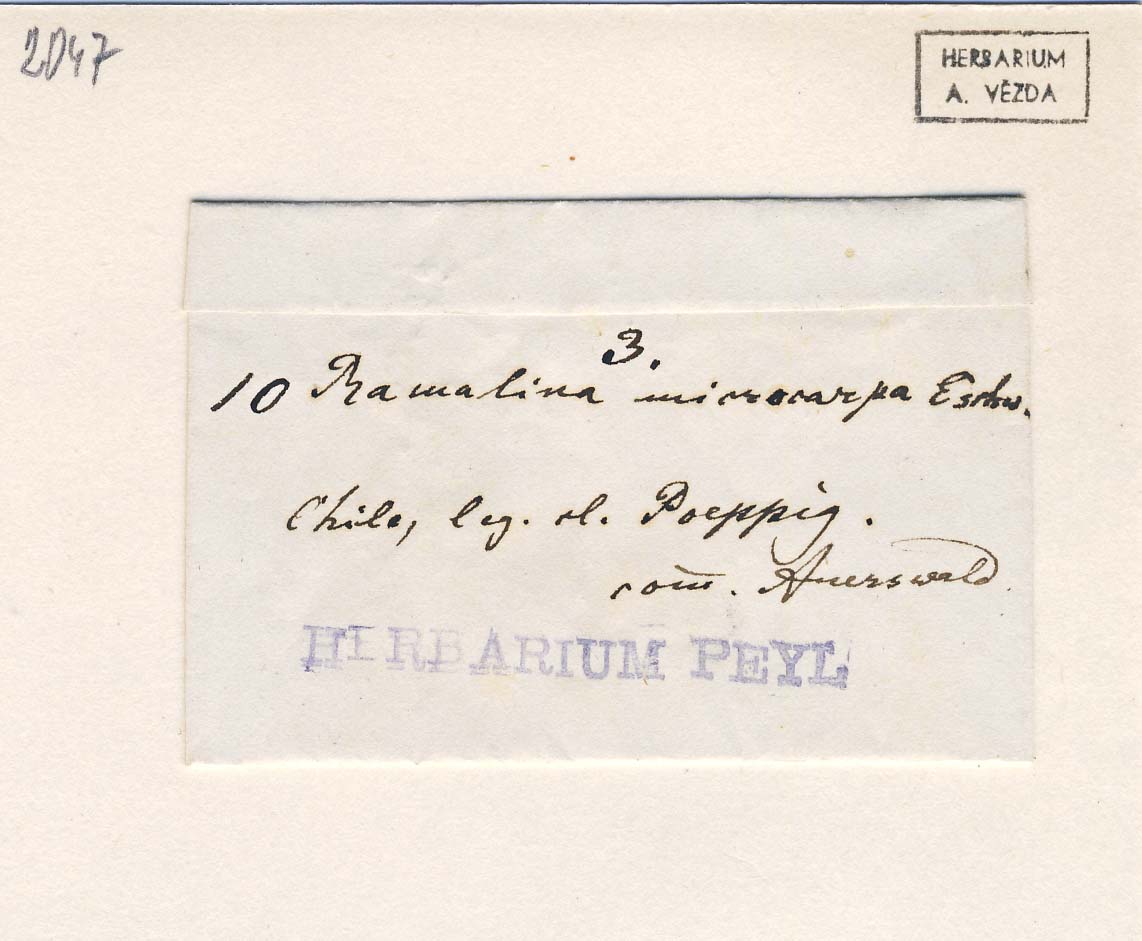 2047
HERBARIUM
A. VĚZDA
3.
10 Ramalina microcarpa Eschw.
Chile, leg. cl. Poeppig.
com̅. Auerswald
HERBARIUM PEYL